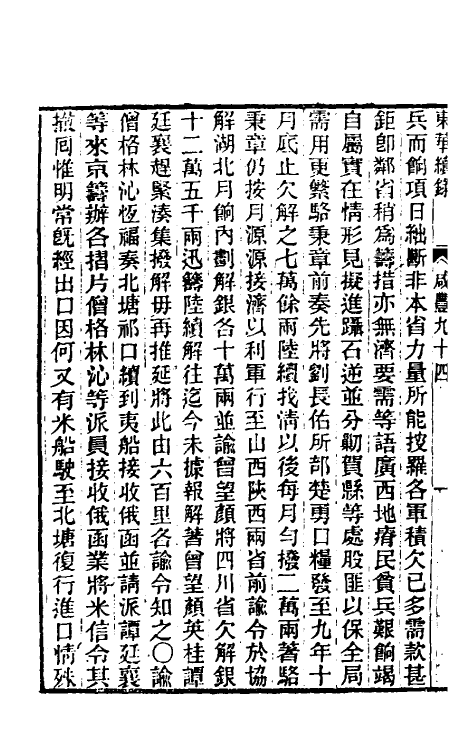 東華續錄 咸豐九十四
兵而餉項日絀斷非本省力量所能按羅各軍積欠已多需款甚
鉅卽鄰省稍為籌措亦無濟要需等語廣西地瘠民貧兵艱餉竭
自屬實在情形見擬進躡石逆並分勦賀縣等處股匪以保全局
需用更繁駱秉章前奏先將劉長佑所部楚勇口糧發至九年十
月底止欠解之七萬餘兩陸續找清以後每月勻撥二萬兩著駱
秉章仍按月源源接濟以利軍行至山西陝西兩省前諭令於協
解湖北月餉內劃解銀各十萬兩並諭曾望顏將四川省欠解銀
十二萬五千兩迅籌陸續解往迄今未據報解著曾望顏英桂譚
廷襄趕緊湊集撥解毋再推延將此由六百里各諭令知之○諭
僧格林沁恆福奏北塘祁口續到夷船接收俄函並請派譚廷襄
等來京籌辦各摺片僧格林沁等派員接收俄函業將米信令其
撤回惟明常旣經出口因何又有米船駛至北塘復行進口情殊